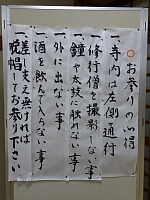 お参りの心得
一、寺内は左側通行
一、修行僧を撮影しない事
一、鐘や太鼓に触れない事
一、外に出ない事
一、酒を飲んで入らない事
一、差支え無ければ
脱帽してお参り下さい